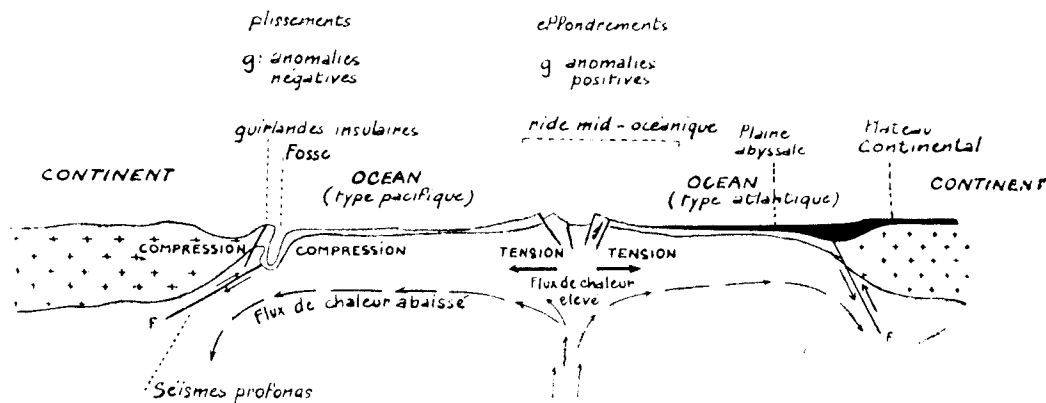 plissements
g: anomalies
négatives
effondrements
g anomalies
positives
guirlandes insulaires
Fosse
ride mid-océanique
Plaine
abyssale
Plateau
Continental
CONTINENT
OCEAN
(type pacifique)
OCEAN
(type atlantique)
CONTINENT
COMPRESSION
COMPRESSION
TENSION
TENSION
Flux de chaleur
elevé
Flux de chaleur abaissé
F
F
Séismes profonds